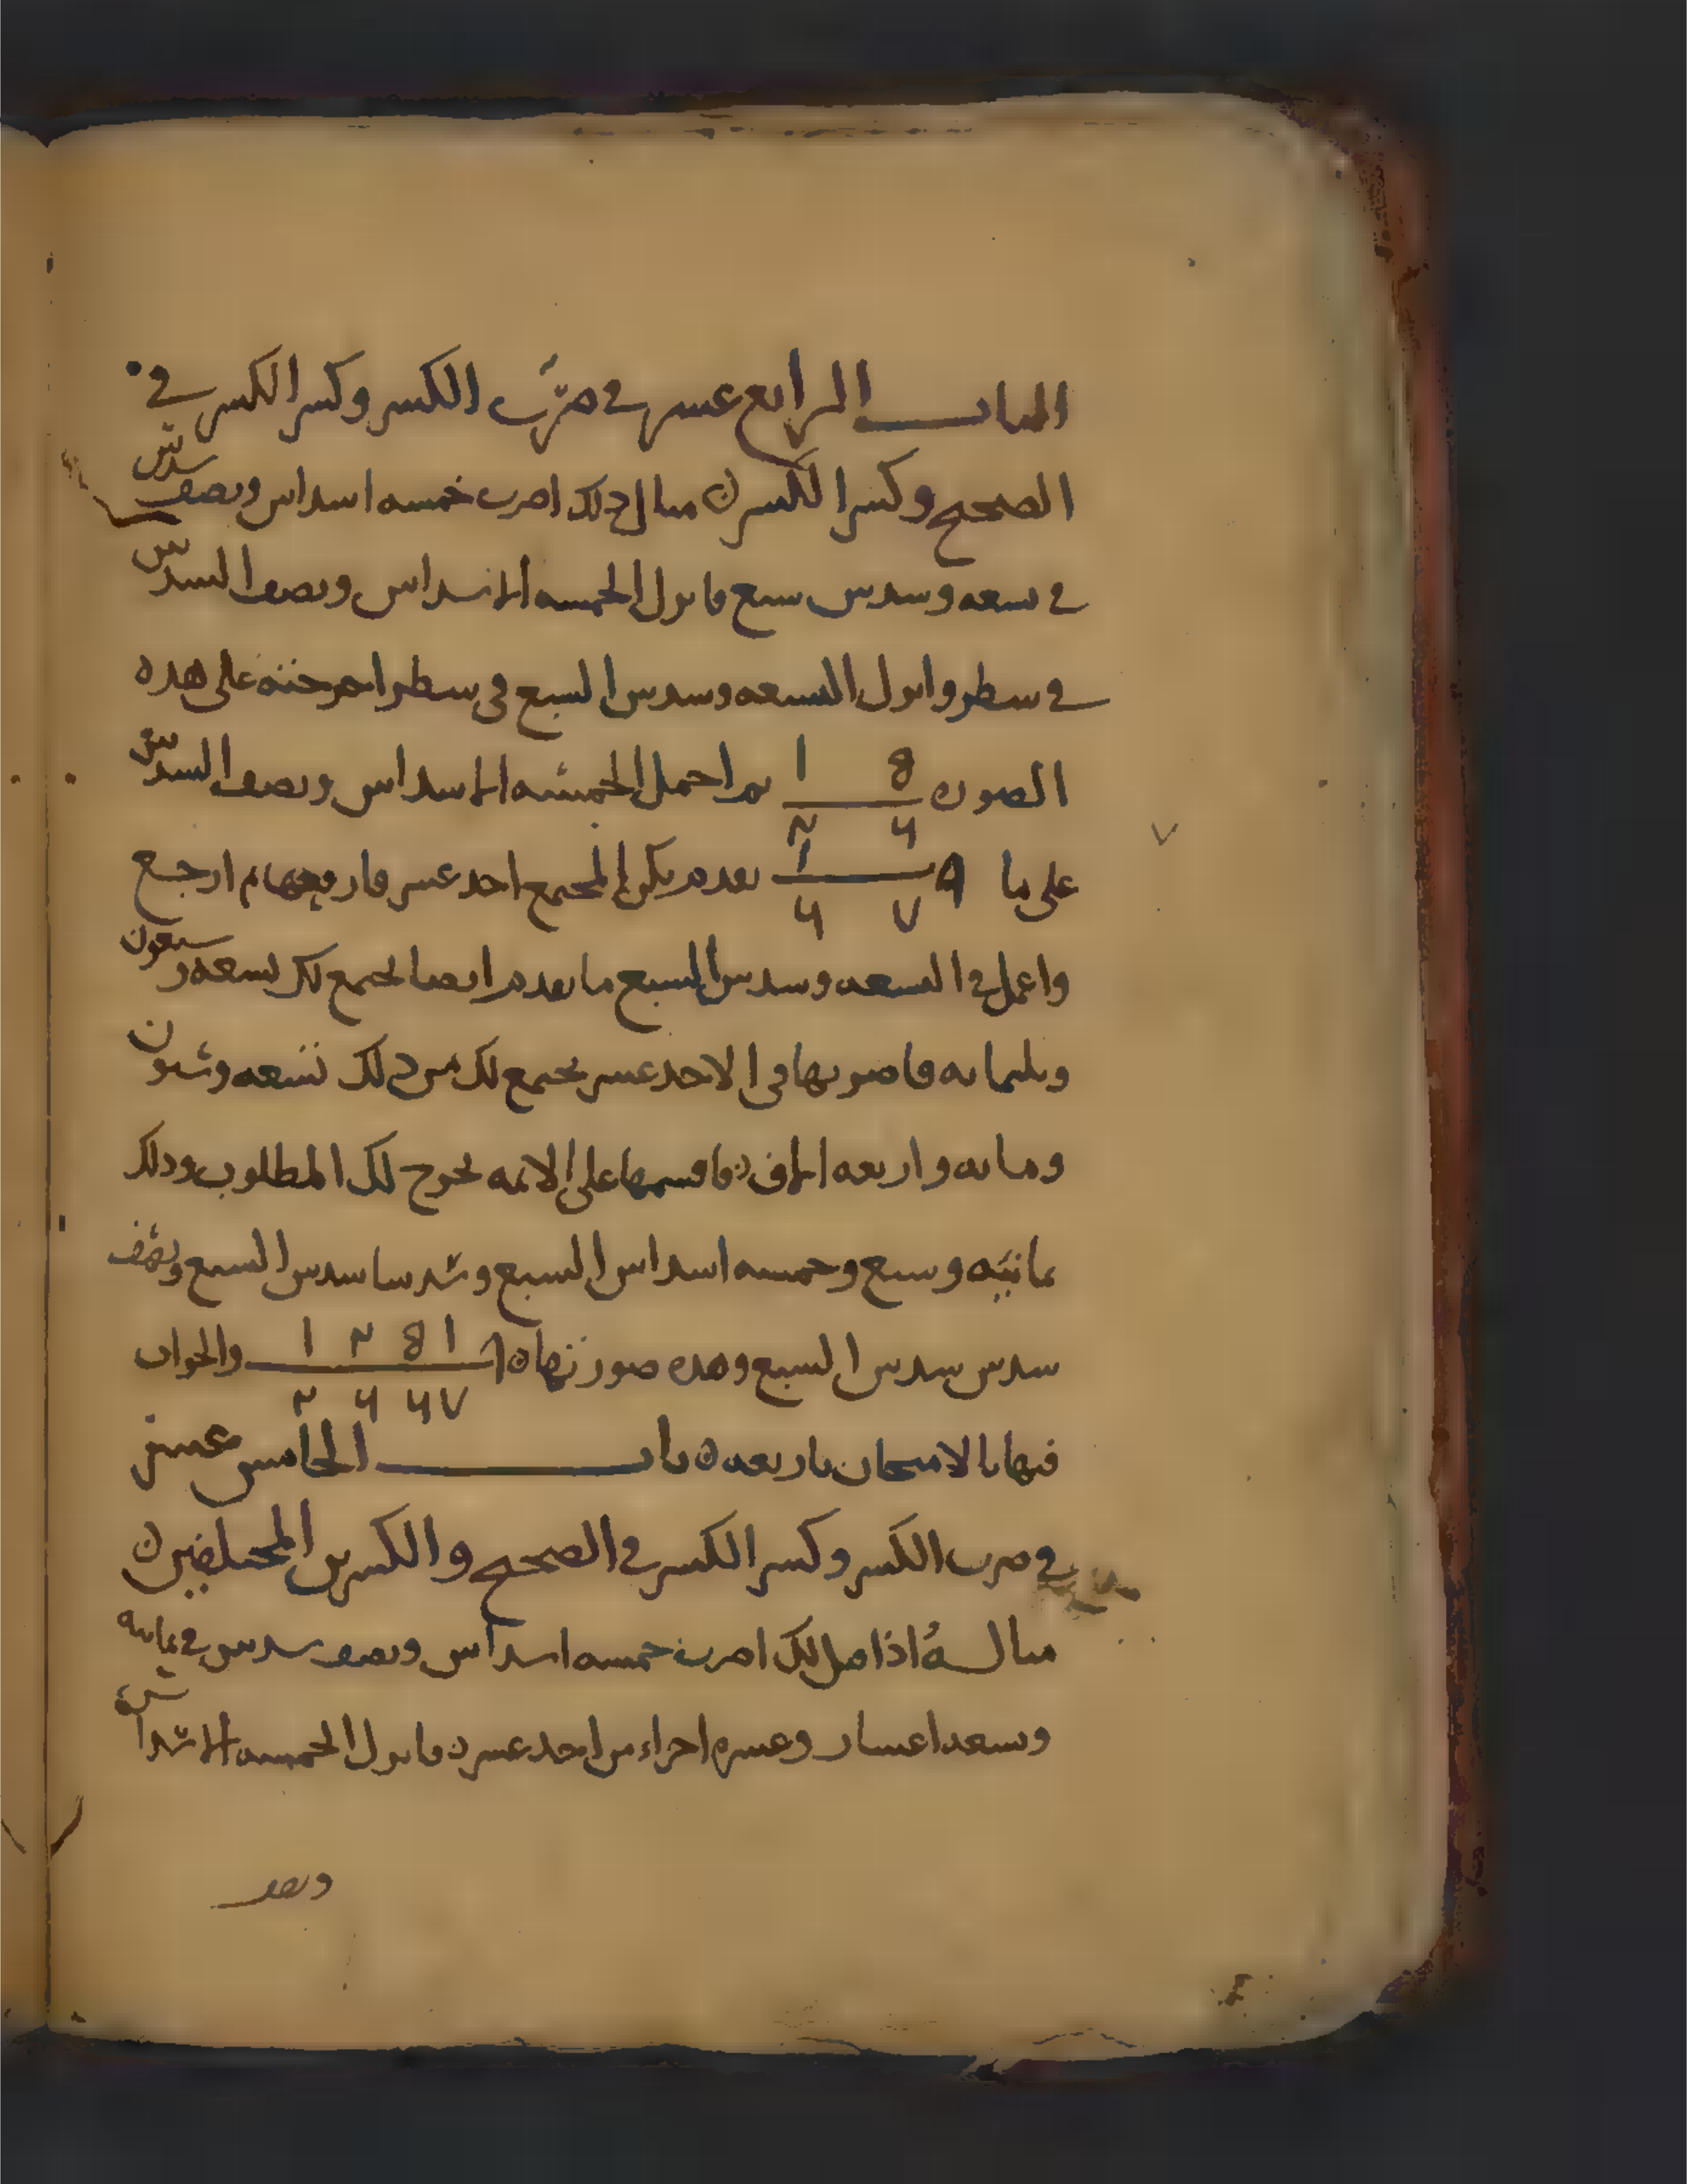 الباب الرابع عشر في ضرب الكسر وكسر الكسر في
الصحيح وكسر الكسر مثال ذلك اضرب خمسه اسداس ونصف سدس
في تسعه وسدس سبع فانزل الخمسه الاسداس ونصف السدس
في سطر وانزل التسعه وسدس السبع في سطر اخر تحته على هذه
الصوره 5 1 ثم احمل الخمسه الاسداس ونصف السدس
6 2
على ما 9 1 تقدم يكن المجتمع احد عشر فارفعها ثم ارجع
7 6
واعمل في التسعه وسدس السبع ما تقدم ايضا يجتمع لك تسعه وسبعون
وثلثمائه فاضربها في الاحد عشر يجتمع لك من ذلك تسعه وستون
ومائه واربعه الاف فاقسمها على الائمه يخرج لك المطلوب وذلك
ثمانيه وسبع وخمسه اسداس السبع وسدسا سدس السبع ونصف
سدس سدس السبع وهذه صورتها 8 1 5 2 1 والجواب
7 6 6 2
فيها بالامتحان باربعه باب الخامس عشر
في ضرب الكسر وكسر الكسر في الصحيح والكسرين المختلفين
مثاله اذا قيل لك اضرب خمسه اسداس ونصف سدس في ثمانيه
وتسعه اعشار وعشره اجزاء من احد عشر فانزل الخمسه الاسداس
ونصف